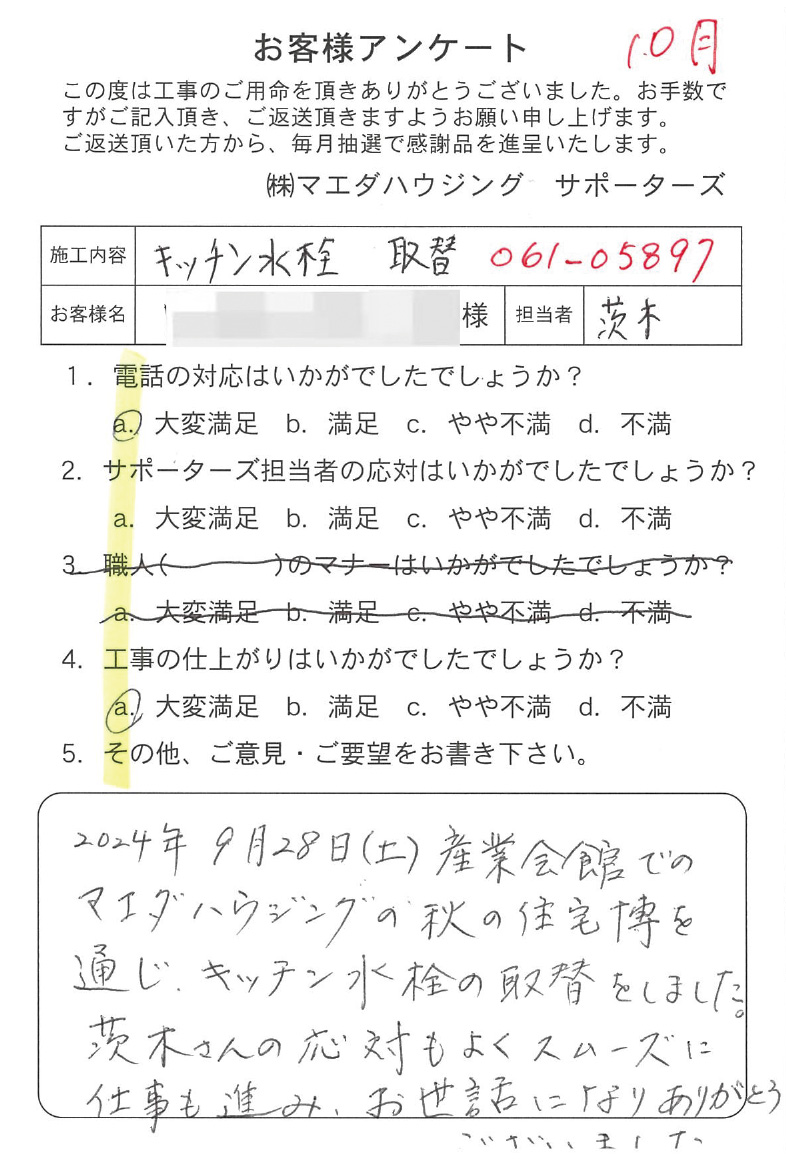 お客様アンケート 10月
この度は工事のご用命を頂きありがとうございました。お手数で
すがご記入頂き、ご返送頂きますようお願い申し上げます。
ご返送頂いた方から、毎月抽選で感謝品を進呈いたします。
㈱マエダハウジング サポーターズ
施工内容 キッチン水栓 取替 061-05897
お客様名 様 担当者 茨木
1. 電話の対応はいかがでしたでしょうか?
a. 大変満足 b. 満足 c. やや不満 d. 不満
2. サポーターズ担当者の応対はいかがでしたでしょうか?
a. 大変満足 b. 満足 c. やや不満 d. 不満
3. 職人( )のマナーはいかがでしたでしょうか?
a. 大変満足 b. 満足 c. やや不満 d. 不満
4. 工事の仕上がりはいかがでしたでしょうか?
a. 大変満足 b. 満足 c. やや不満 d. 不満
5. その他、ご意見・ご要望をお書き下さい。
2024年 9月28日(土)産業会館での
マエダハウジングの秋の住宅博を
通じ、キッチン水栓の取替をしました。
茨木さんの応対もよくスムーズに
仕事も進み、お世話になりありがとう
ございました